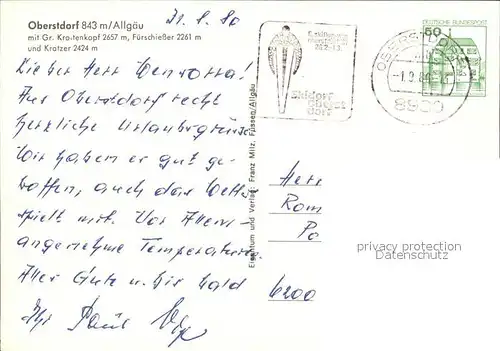 Oberstdorf 843 m/Allgäu
mit Gr. Krottenkopf 2657 m, Fürschießer 2261 m
und Kratzer 2424 m
31. 8. 80
Lieber Herr
Aus Oberstdorf recht
herzliche Urlaubsgrüße
Wir haben es gut ge-
troffen, auch das Wetter
spielt mit. Vor Allem
angenehme Temperaturen
Alles Gute u. bis bald
Ihr Paul
Eigentum und Verlag: Franz Milz, Füssen/Allgäu
Skidorf
DEUTSCHE BUNDESPOST
50
OBERSTDORF
-1.9.80
8980
Herr
Rom
Po
6200
privacy protection
WATERMARK